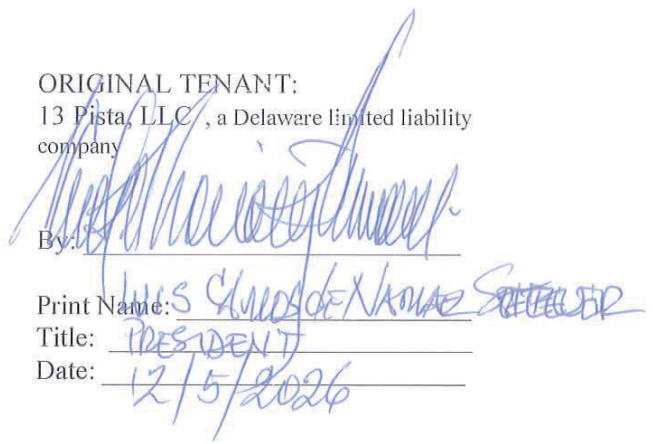 ORIGINAL TENANT:
13 Pista, LLC , a Delaware limited liability
company
By:
Print Name: LUIS CARLOS DE
Title: PRESIDENT
Date: 12/5/2026